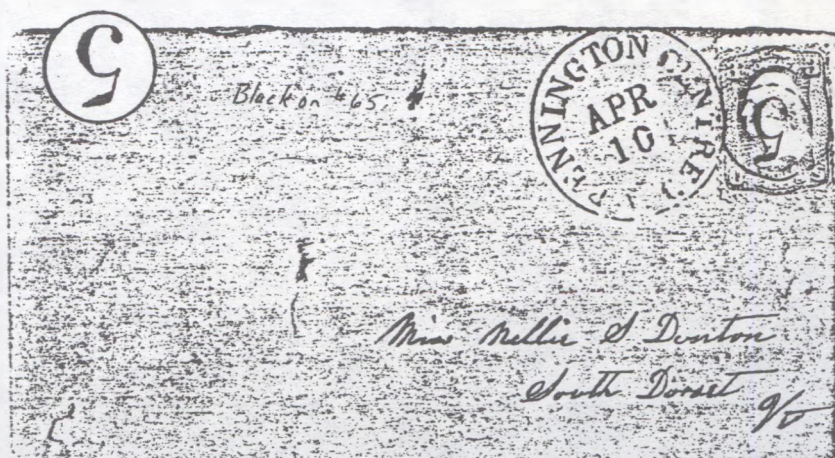 5
Black on #65
BENNINGTON CENTRE
APR
10
5
Miss Nellie S
South Dorset
Vt